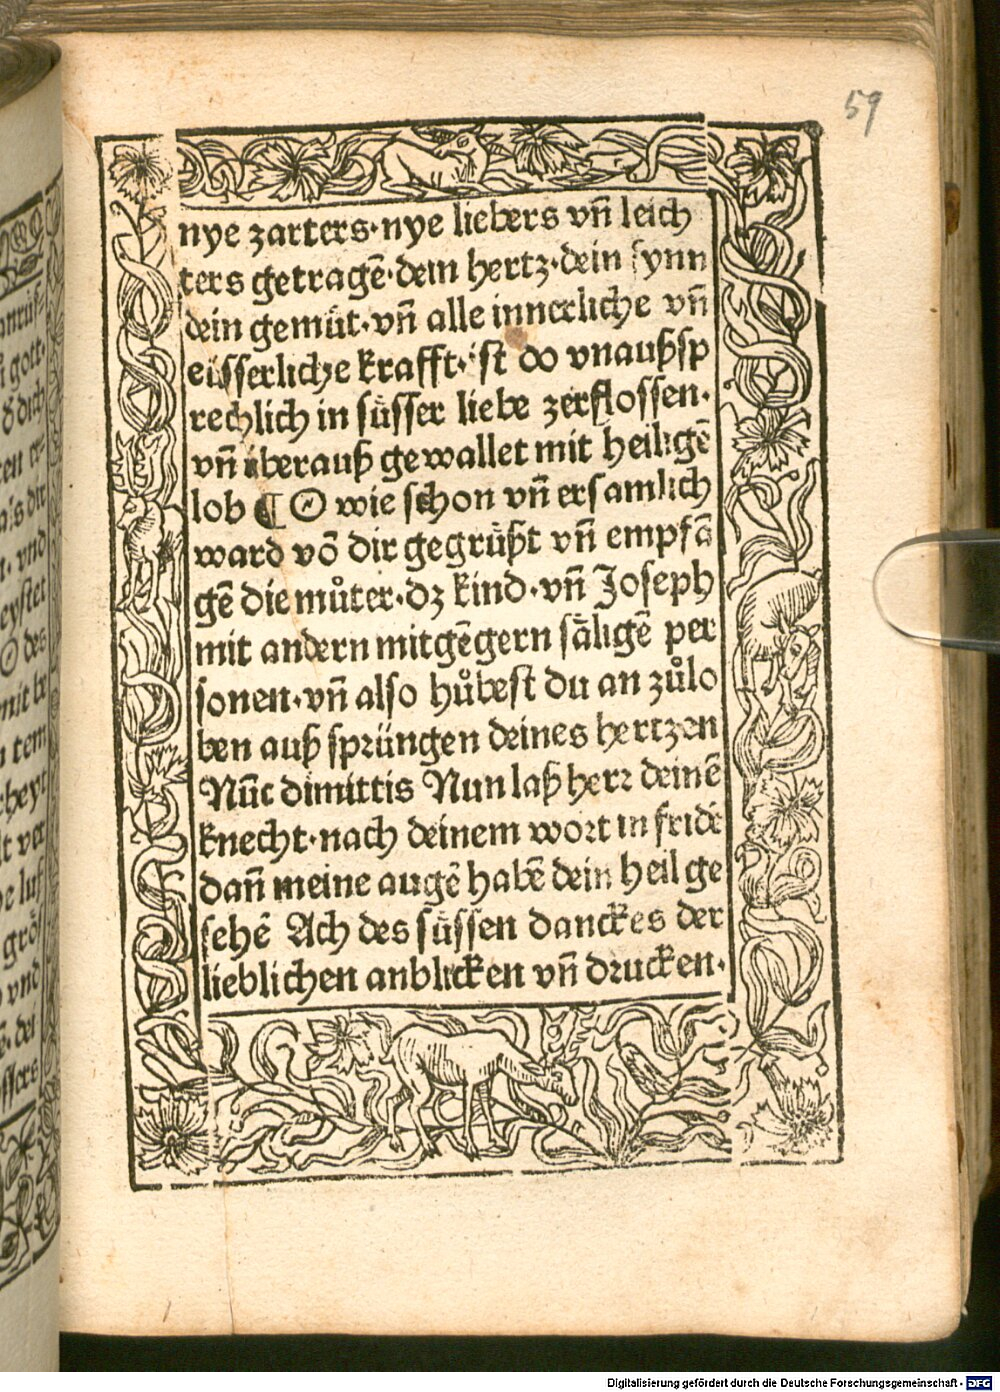 59
nye zarters·nye liebers vñ leich
ters getragē·dein hertz·dein synn
dein gemüt·vñ alle innerliche vñ
eüsserliche krafft·ist do vnaußsp
rechlich in süsser liebe zerflossen·
vñ überauß gewallet mit heiligē
lob ¶ O wie schon vñ ersamlich
ward vō dir gegrüßt vñ empfā
gē die můter·dz kind·vñ Joseph
mit andern mitgēgern säligē per
sonen·vñ also hůbest du an zůlo
ben auß sprüngen deines hertzen
Nūc dimittis Nun laß herr deinē
knecht·nach deinem wort in fridē
dañ meine augē habē dein heil ge
sehē Ach des süssen danckes der
lieblichen anblicken vñ drucken·
gott·
dich
vnd
des
vnd
Digitalisierung gefördert durch die Deutsche Forschungsgemeinschaft - DFG